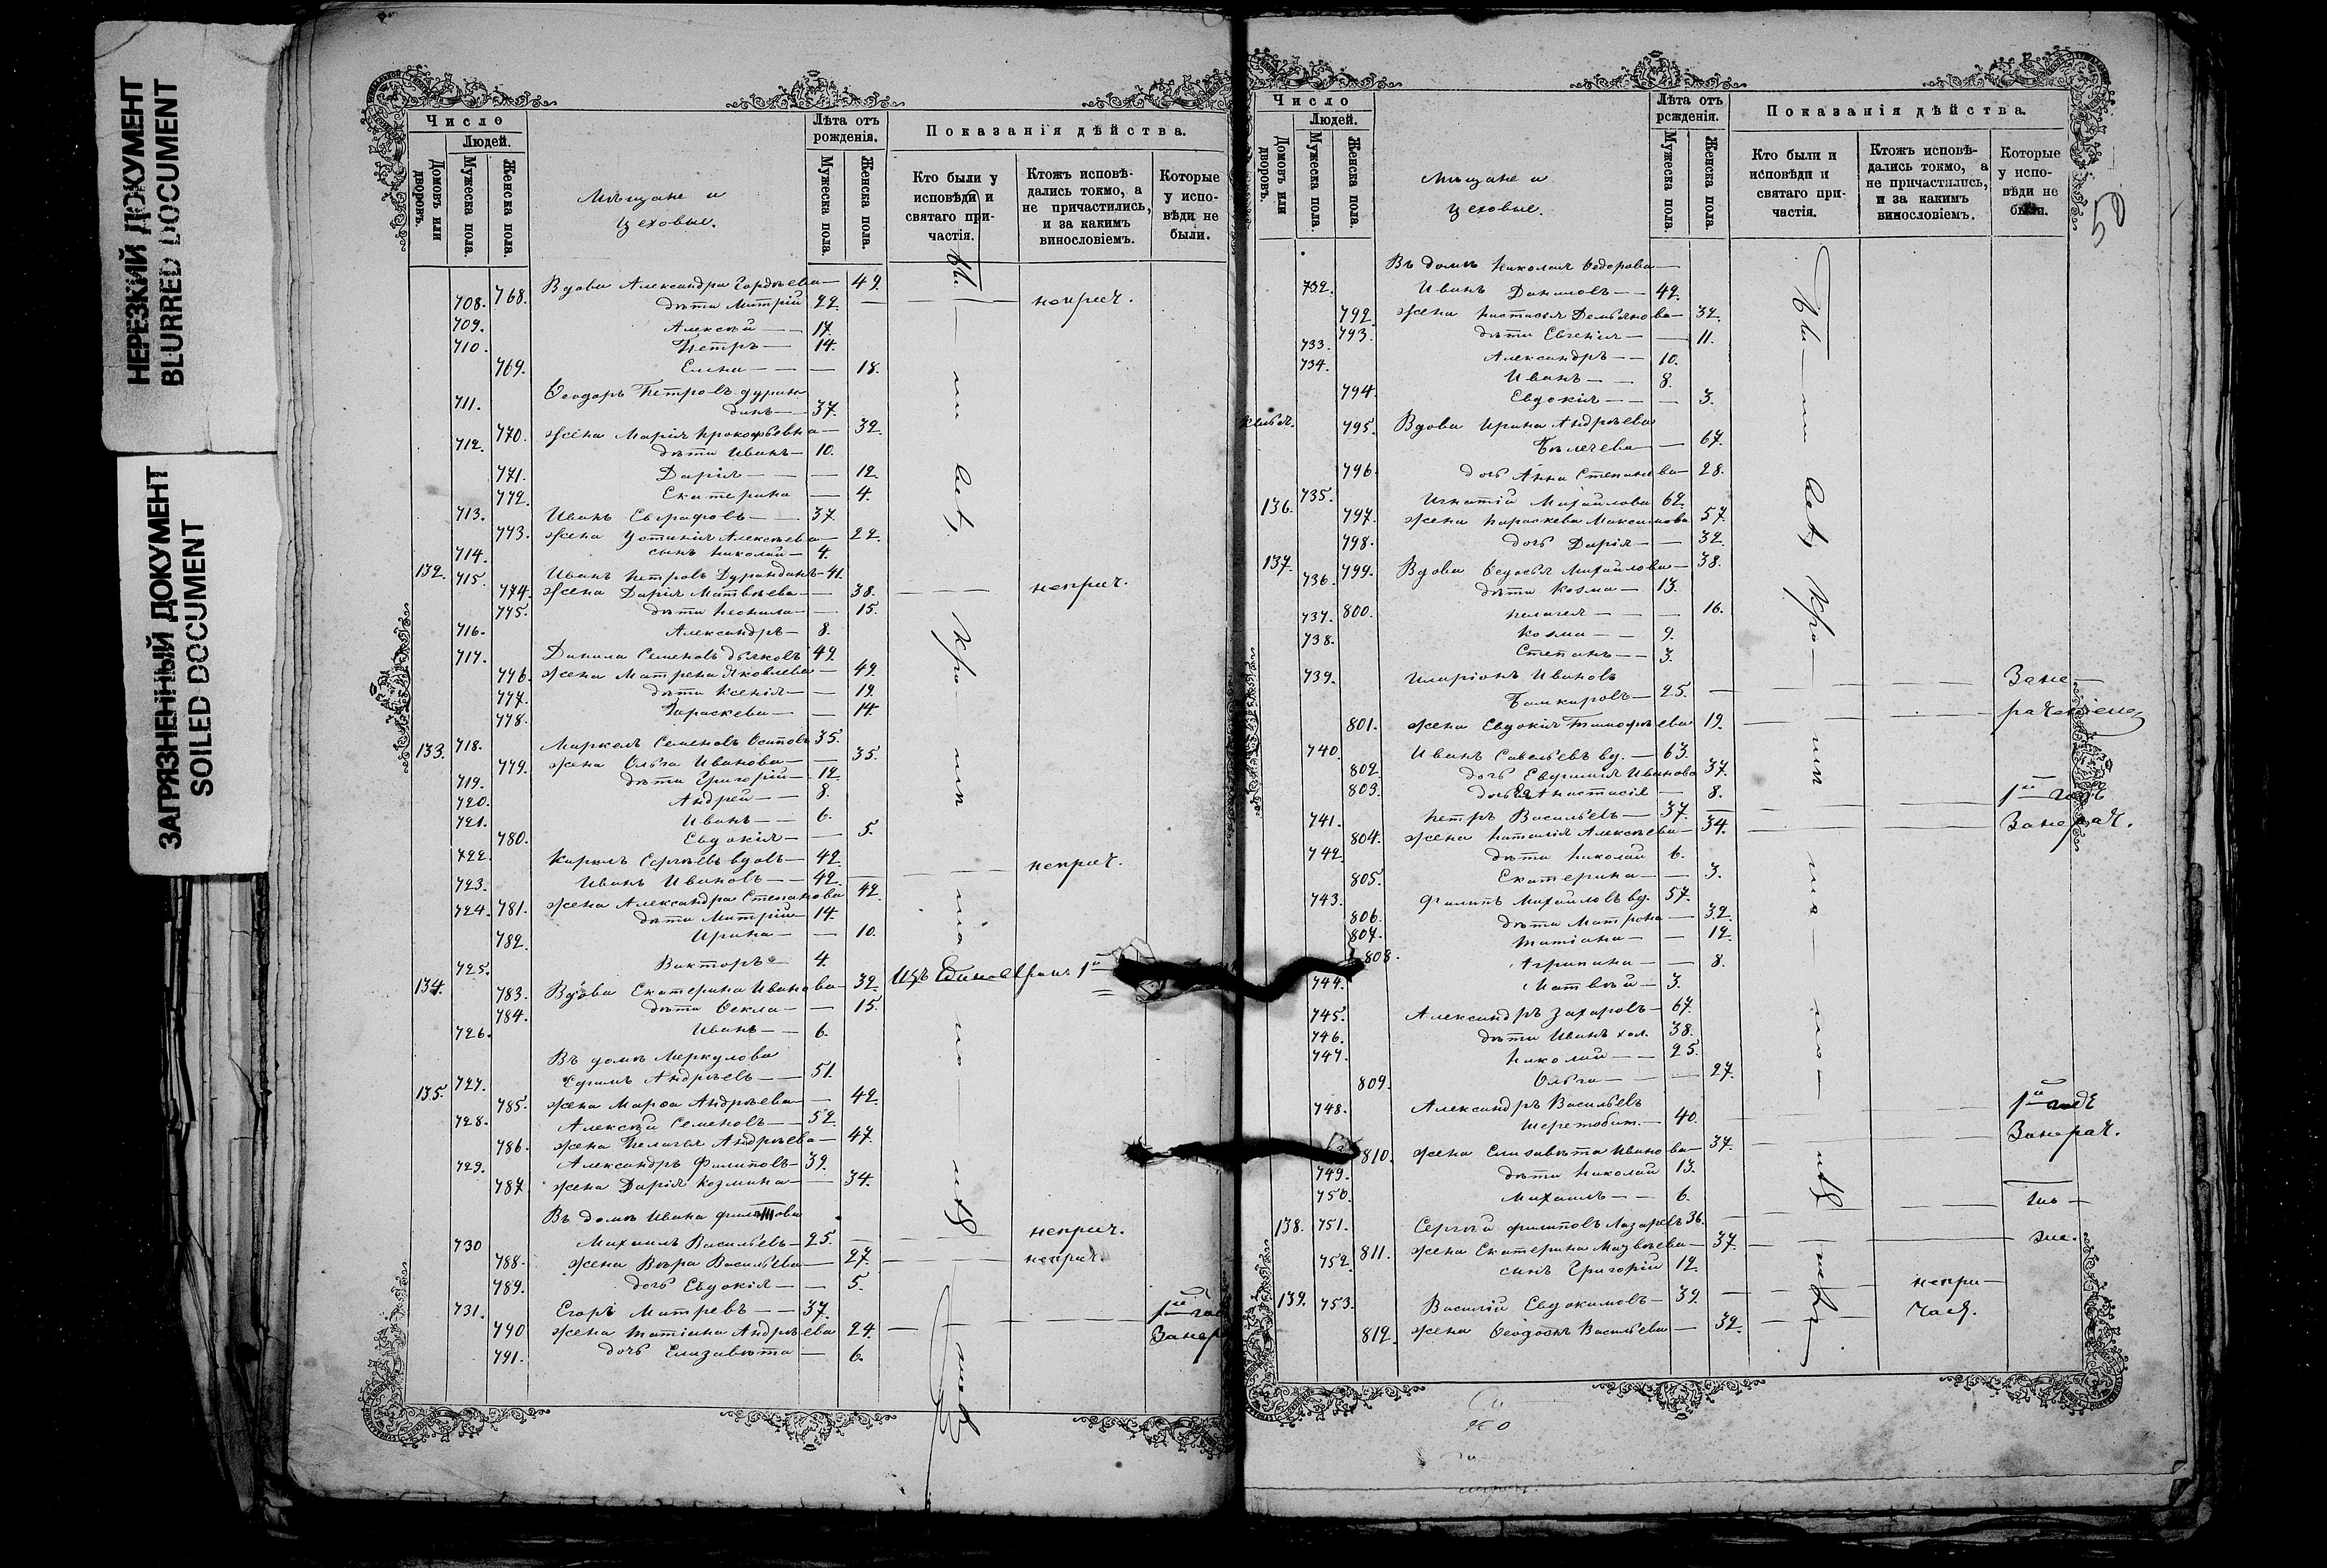 НЕРЕЗКИЙ ДОКУМЕНТ
BLURRED DOCUMENT
ЗАГРЯЗНЕННЫЙ ДОКУМЕНТ
SOILED DOCUMENT
Число
Людей.
Домовъ или дворовъ.
Мужеска пола.
Женска пола.
Мѣщане и
цеховые.
Лѣта отъ рожденія.
Мужеска пола.
Женска пола.
Показанія дѣйства.
Кто были у исповѣди и святаго причастія.
Ктожъ исповѣдались токмо, а не причастились, и за какимъ винословіемъ.
Которые у исповѣди не были.
768. Вдова Александра Гордѣева — 49.
708. дѣти Митрій 22. — неприч.
709. Алексѣй — 17.
710. Петръ — 14.
769. Елена — — 18.
Ѳеодоръ Петровъ Дуран-
711. динъ — 37.
770. жена Марія Прокофьевна — 32.
712. дѣти Иванъ — 10.
771. Дарія — — 12.
772. Екатерина — 4.
713. Иванъ Евграфовъ — 37.
773. жена Устинія Алексѣева — 22.
714. сынъ Николай — 4.
132. 715. Иванъ Петровъ Дурандинъ — 41.
774. жена Дарія Матвѣева — 38. — неприч.
775. дѣти Неонила — 15.
716. Александръ — 8.
717. Данила Семеновъ Дьяковъ 49.
776. жена Матрена Яковлева — 49.
777. дѣти Ксенія — 19.
778. Параскева — — 14.
133. 718. Маркелъ Семеновъ Осиповъ 35.
779. жена Ольга Иванова — 35.
719. дѣти Григорій — 12.
720. Андрей — 8.
721. Иванъ — 6.
780. Евдокія — — 5.
722. Кирилъ Сергѣевъ вдовъ — 42. — неприч.
723. Иванъ Ивановъ — 42.
781. жена Александра Степанова 42.
724. дѣти Митрій — 14.
782. Ирина — — 10.
725. Викторъ — 4.
134. 783. Вдова Екатерина Иванова — 32.
784. дѣти Ѳекла — — 15.
726. Иванъ — 6.
Въ домѣ Меркулова
135. 727. Ефимъ Андрѣевъ — 51.
785. жена Марѳа Андрѣева — 42.
728. Алексѣй Семеновъ — 52.
786. жена Пелагія Андрѣева — 47.
729. Александръ Филиповъ — 39.
787. жена Дарія Козмина — 34.
Въ домѣ Ивана
730 Михаилъ Васильевъ — 25. — неприч.
788. жена Вѣра Васильева — 27. — неприч.
789. дочь Евдокія — — 5.
731. Егоръ Митревъ — 37.
790 жена Татіана Андрѣева 24.
791. дочь Елизавѣта — 6.
Число
Людей.
Домовъ или дворовъ.
Мужеска пола.
Женска пола.
Мѣщане и
цеховые.
Лѣта отъ рожденія.
Мужеска пола.
Женска пола.
Показанія дѣйства.
Кто были и исповѣди и святаго причастія.
Ктожъ исповѣдались токмо, а не причастились, и за какимъ винословіемъ.
Которые у исповѣди не были.
50
Въ домѣ Николая Ѳедорова —
732. Иванъ Даниловъ — 42.
792. жена Настасья Демьянова — 32.
793. дѣти Евгенія — — 11.
733. Александръ — 10.
734. Иванъ — 8.
794. Евдокія — — 3.
795. Вдова Ирина Андрѣева
— 67.
796. дочь Анна Степанова — 28.
136. 735. Игнатій Михайловъ 62.
797. жена Параскева Максимова 57.
798. дочь Дарія — 32.
137. 799. Вдова Ѳедосья Михайлова — 38.
736. дѣти Козма — 13.
737. 800. Пелагея — — 16.
738. Козма — 9.
Степанъ — 3.
739. Иларіонъ Ивановъ
— 25.
801. жена Евдокія Тимофѣева 19.
740. Иванъ Савельевъ вд. — 63.
802. дочь Евфимія Иванова 37.
803. Анастасія — 8.
741. Петръ Васильевъ — 37.
804. жена Наталія Алексѣева — 34.
742. дѣти Николай 6.
805. Екатерина — — 3.
743. Филипъ Михайловъ вд. 57.
806. дѣти Матрона — 32.
807. Татіана — — 12.
808. Агрипина — — 8.
744. Матвѣй — 3.
745. Александръ Захаровъ — 67.
746. дѣти Иванъ хол. 38.
747. Николай — 25.
809. Ольга — — 27.
748. Александръ Васильевъ
— 40.
810. жена Елизавѣта Иванова — 37.
749. дѣти Николай 13.
750. Михаилъ — 6.
138. 751. Сергѣй Филиповъ Лазаревъ 36.
811. жена Екатерина Матвѣева — 37.
752. сынъ Григорій 12.
139. 753. Василій Евдокимовъ — 39. — непри-
812. жена Ѳеодосія Васильева — 32. — част.